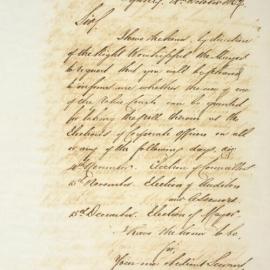 Sir,
I have the honor, by direction
of the Right Worshipful the Mayor
to request that you will be pleased
to inform me whether the use of one
of the Police Courts can be granted
for taking the poll thereon at the
Elections of Corporate Officers on all
or any of the following days, viz
November. Election of Councillors
November. Election of Auditors
and Assessors
December. Election of Mayor
I have the honor to be
Sir
Your most obedient Servant